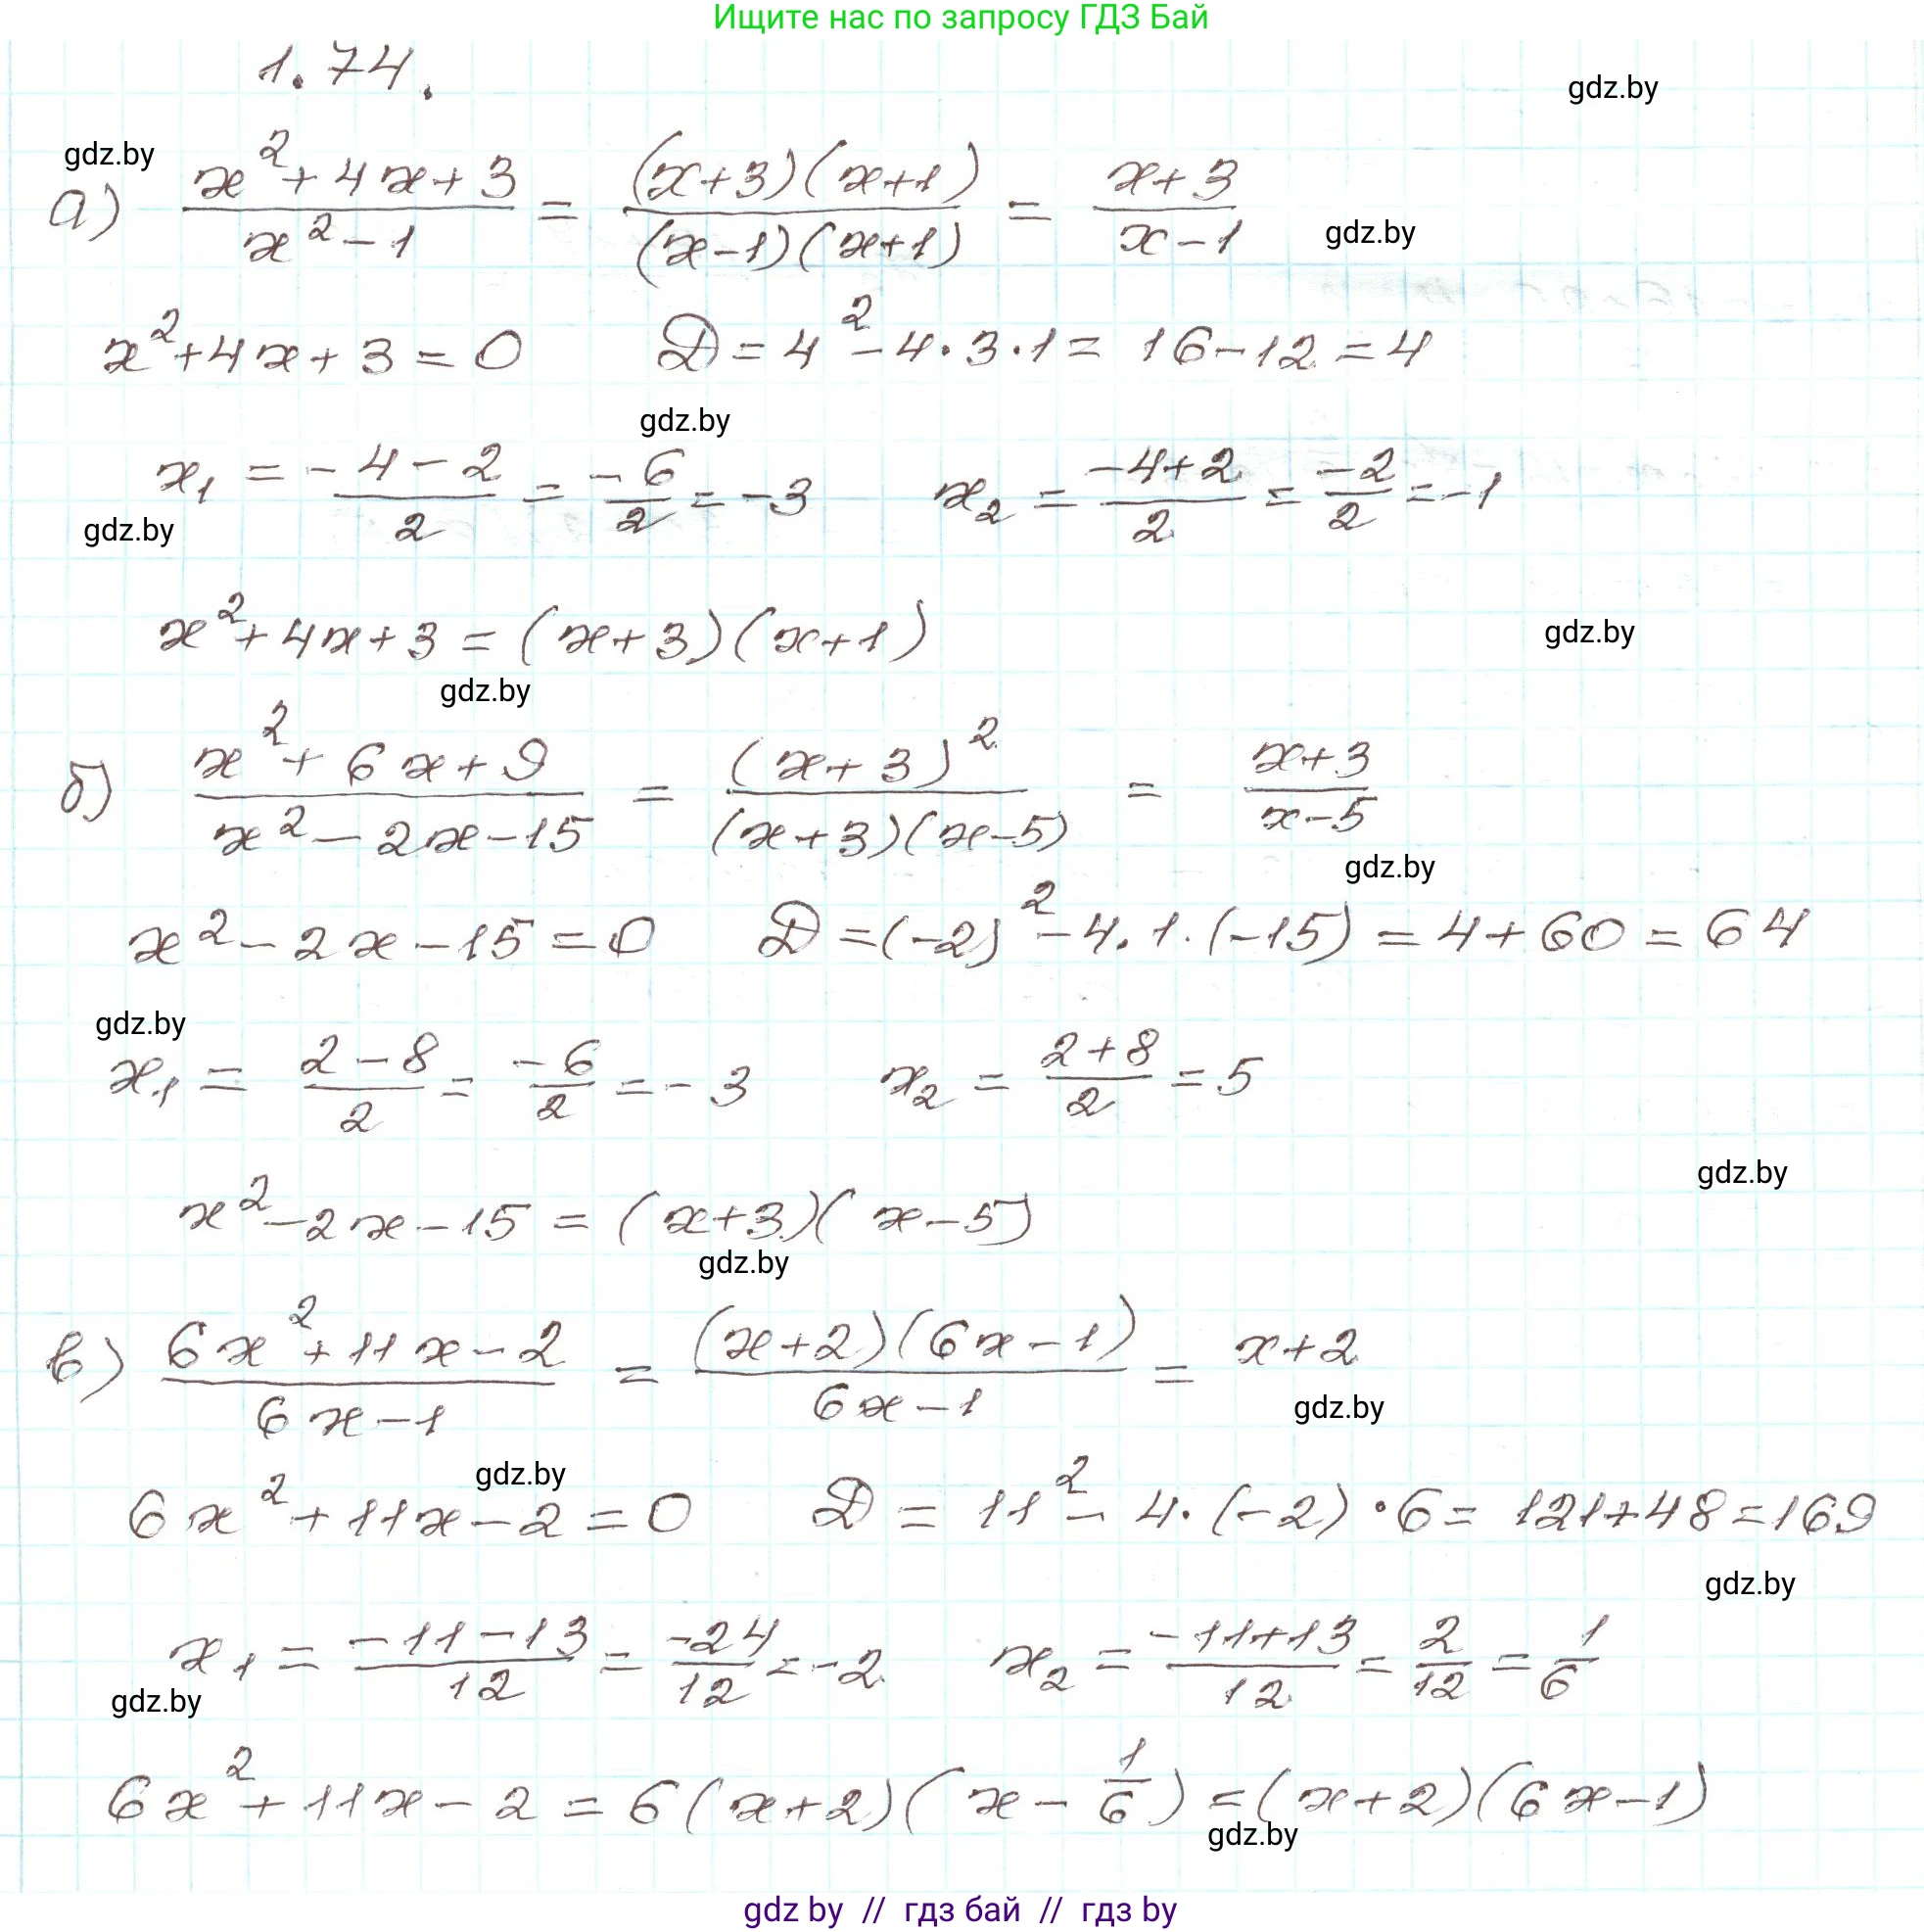 Ищите нас по запросу ГДЗ Бай
1.74.
gdz.by
gdz.by
а) (x²+4x+3)/(x²-1) = ((x+3)(x+1))/((x-1)(x+1)) = (x+3)/(x-1)
gdz.by
x²+4x+3=0 D=4²-4·3·1=16-12=4
gdz.by
x₁=(-4-2)/2=(-6)/2=-3 x₂=(-4+2)/2=(-2)/2=-1
gdz.by
x²+4x+3=(x+3)(x+1)
gdz.by
gdz.by
б) (x²+6x+9)/(x²-2x-15) = (x+3)²/((x+3)(x-5)) = (x+3)/(x-5)
gdz.by
x²-2x-15=0 D=(-2)²-4·1·(-15)=4+60=64
gdz.by
x₁=(2-8)/2=(-6)/2=-3 x₂=(2+8)/2=5
gdz.by
x²-2x-15=(x+3)(x-5)
gdz.by
в) (6x²+11x-2)/(6x-1) = ((x+2)(6x-1))/(6x-1) = x+2
gdz.by
gdz.by
6x²+11x-2=0 D=11²-4·(-2)·6=121+48=169
gdz.by
x₁=(-11-13)/12=(-24)/12=-2 x₂=(-11+13)/12=2/12=1/6
gdz.by
6x²+11x-2=6(x+2)(x-1/6)=(x+2)(6x-1)
gdz.by
gdz by // гдз бай // гдз by